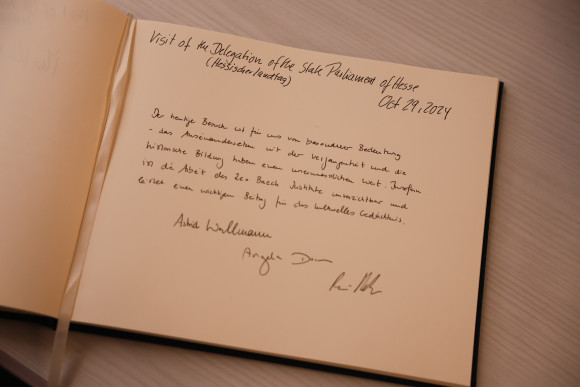 Visit of the Delegation of the State Parliament of Hesse
(Hessischer Landtag)
Oct 29, 2024
Der heutige Besuch ist für uns von besonderer Bedeutung
- das Auseinandersetzen mit der Vergangenheit und die
historische Bildung haben einen unermesslichen Wert. Insofern
ist die Arbeit des Leo Baeck Instituts unverzichtbar und
leistet einen wichtigen Beitrag für das kulturelles Gedächtnis.
Astrid Wallmann
Angela Dorn